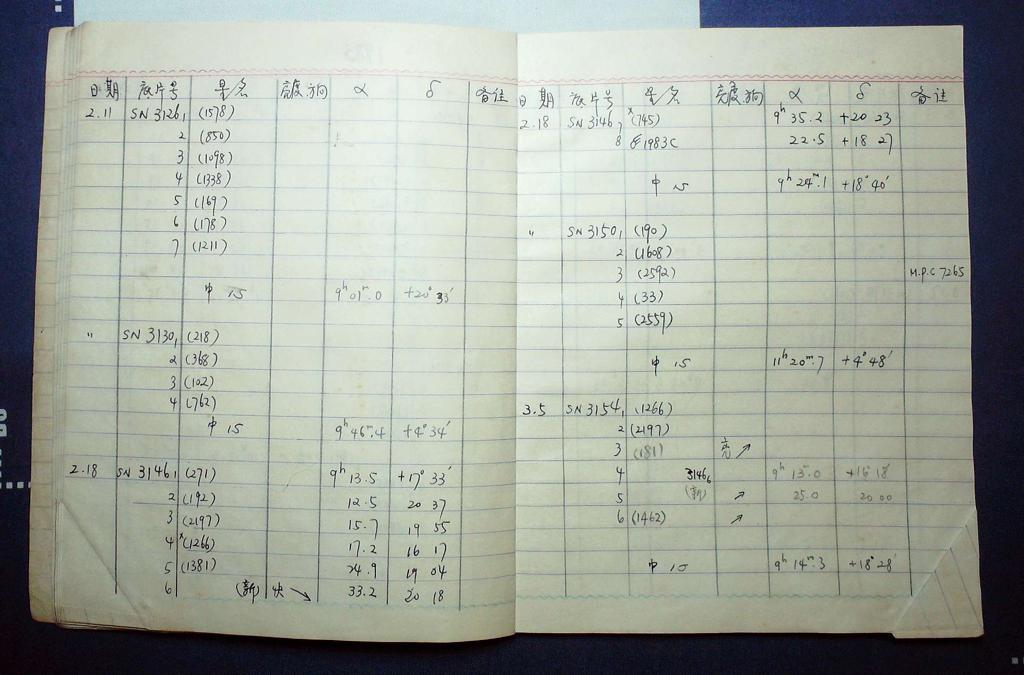 日期 底片号 星名 亮度 方向 α δ 备注
2.11 SN 3126₁ (1578)
2 (850)
3 (1098)
4 (1338)
5 (169)
6 (178)
7 (1211)
中 15 9ʰ 01ᵐ.0 +20° 33′
〃 SN 3130₁ (218)
2 (368)
3 (102)
4 (762)
中 15 9ʰ 46ᵐ.4 +4° 34′
2.18 SN 3146₁ (271) 9ʰ 13.5 +17° 33′
2 (192) 12.5 20 37
3 (2197) 15.7 19 55
4 ˣ(1266) 17.2 16 17
5 (1381) 24.9 19 04
6 (新) 快 ↘ 33.2 20 18
日期 底片号 星名 亮度 方向 α δ 备注
2.18 SN 3146₇ ˣ(745) 9ʰ 35.2 +20 23
8 1983C 22.5 +18 27
中 15 9ʰ 24ᵐ.1 +18° 40′
〃 SN 3150₁ (190)
2 (1608)
3 (2592) M.P.C 7265
4 (33)
5 (2559)
中 15 11ʰ 20ᵐ.7 +4° 48′
3.5 SN 3154₁ (1266)
2 (2197)
3 (181) 亮 ↗
4 3146₆ 9ʰ 13ᵐ.0 +16° 18′
5 (新) ↗ 25.0 20 00
6 (1462) ↗
中 10 9ʰ 14ᵐ.3 +18° 28′